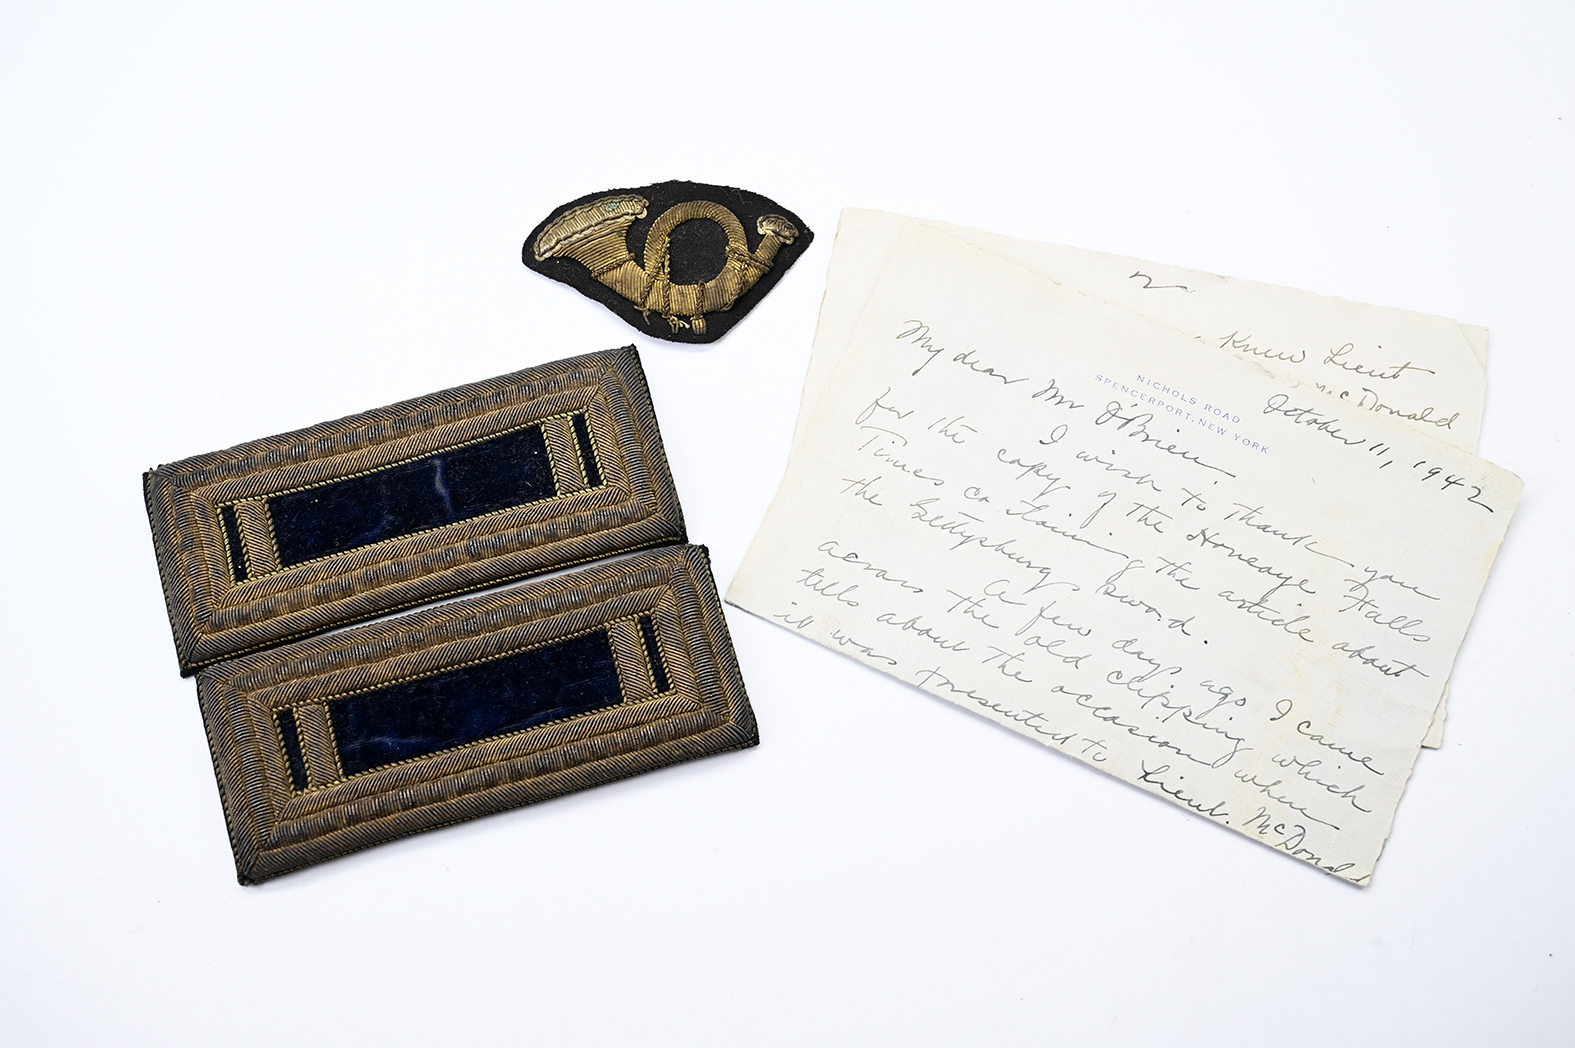 Knew Lieut
McDonald
NICHOLS ROAD
SPENCERPORT, NEW YORK
October 11, 1942
My dear Mr O'Brien
I wish to thank you
for the copy of the Honeoye Falls
Times containing the article about
the Gettysburg sword.
A few days ago I came
across the old clipping which
tells about the occasion when
it was presented to Lieut. McDonald